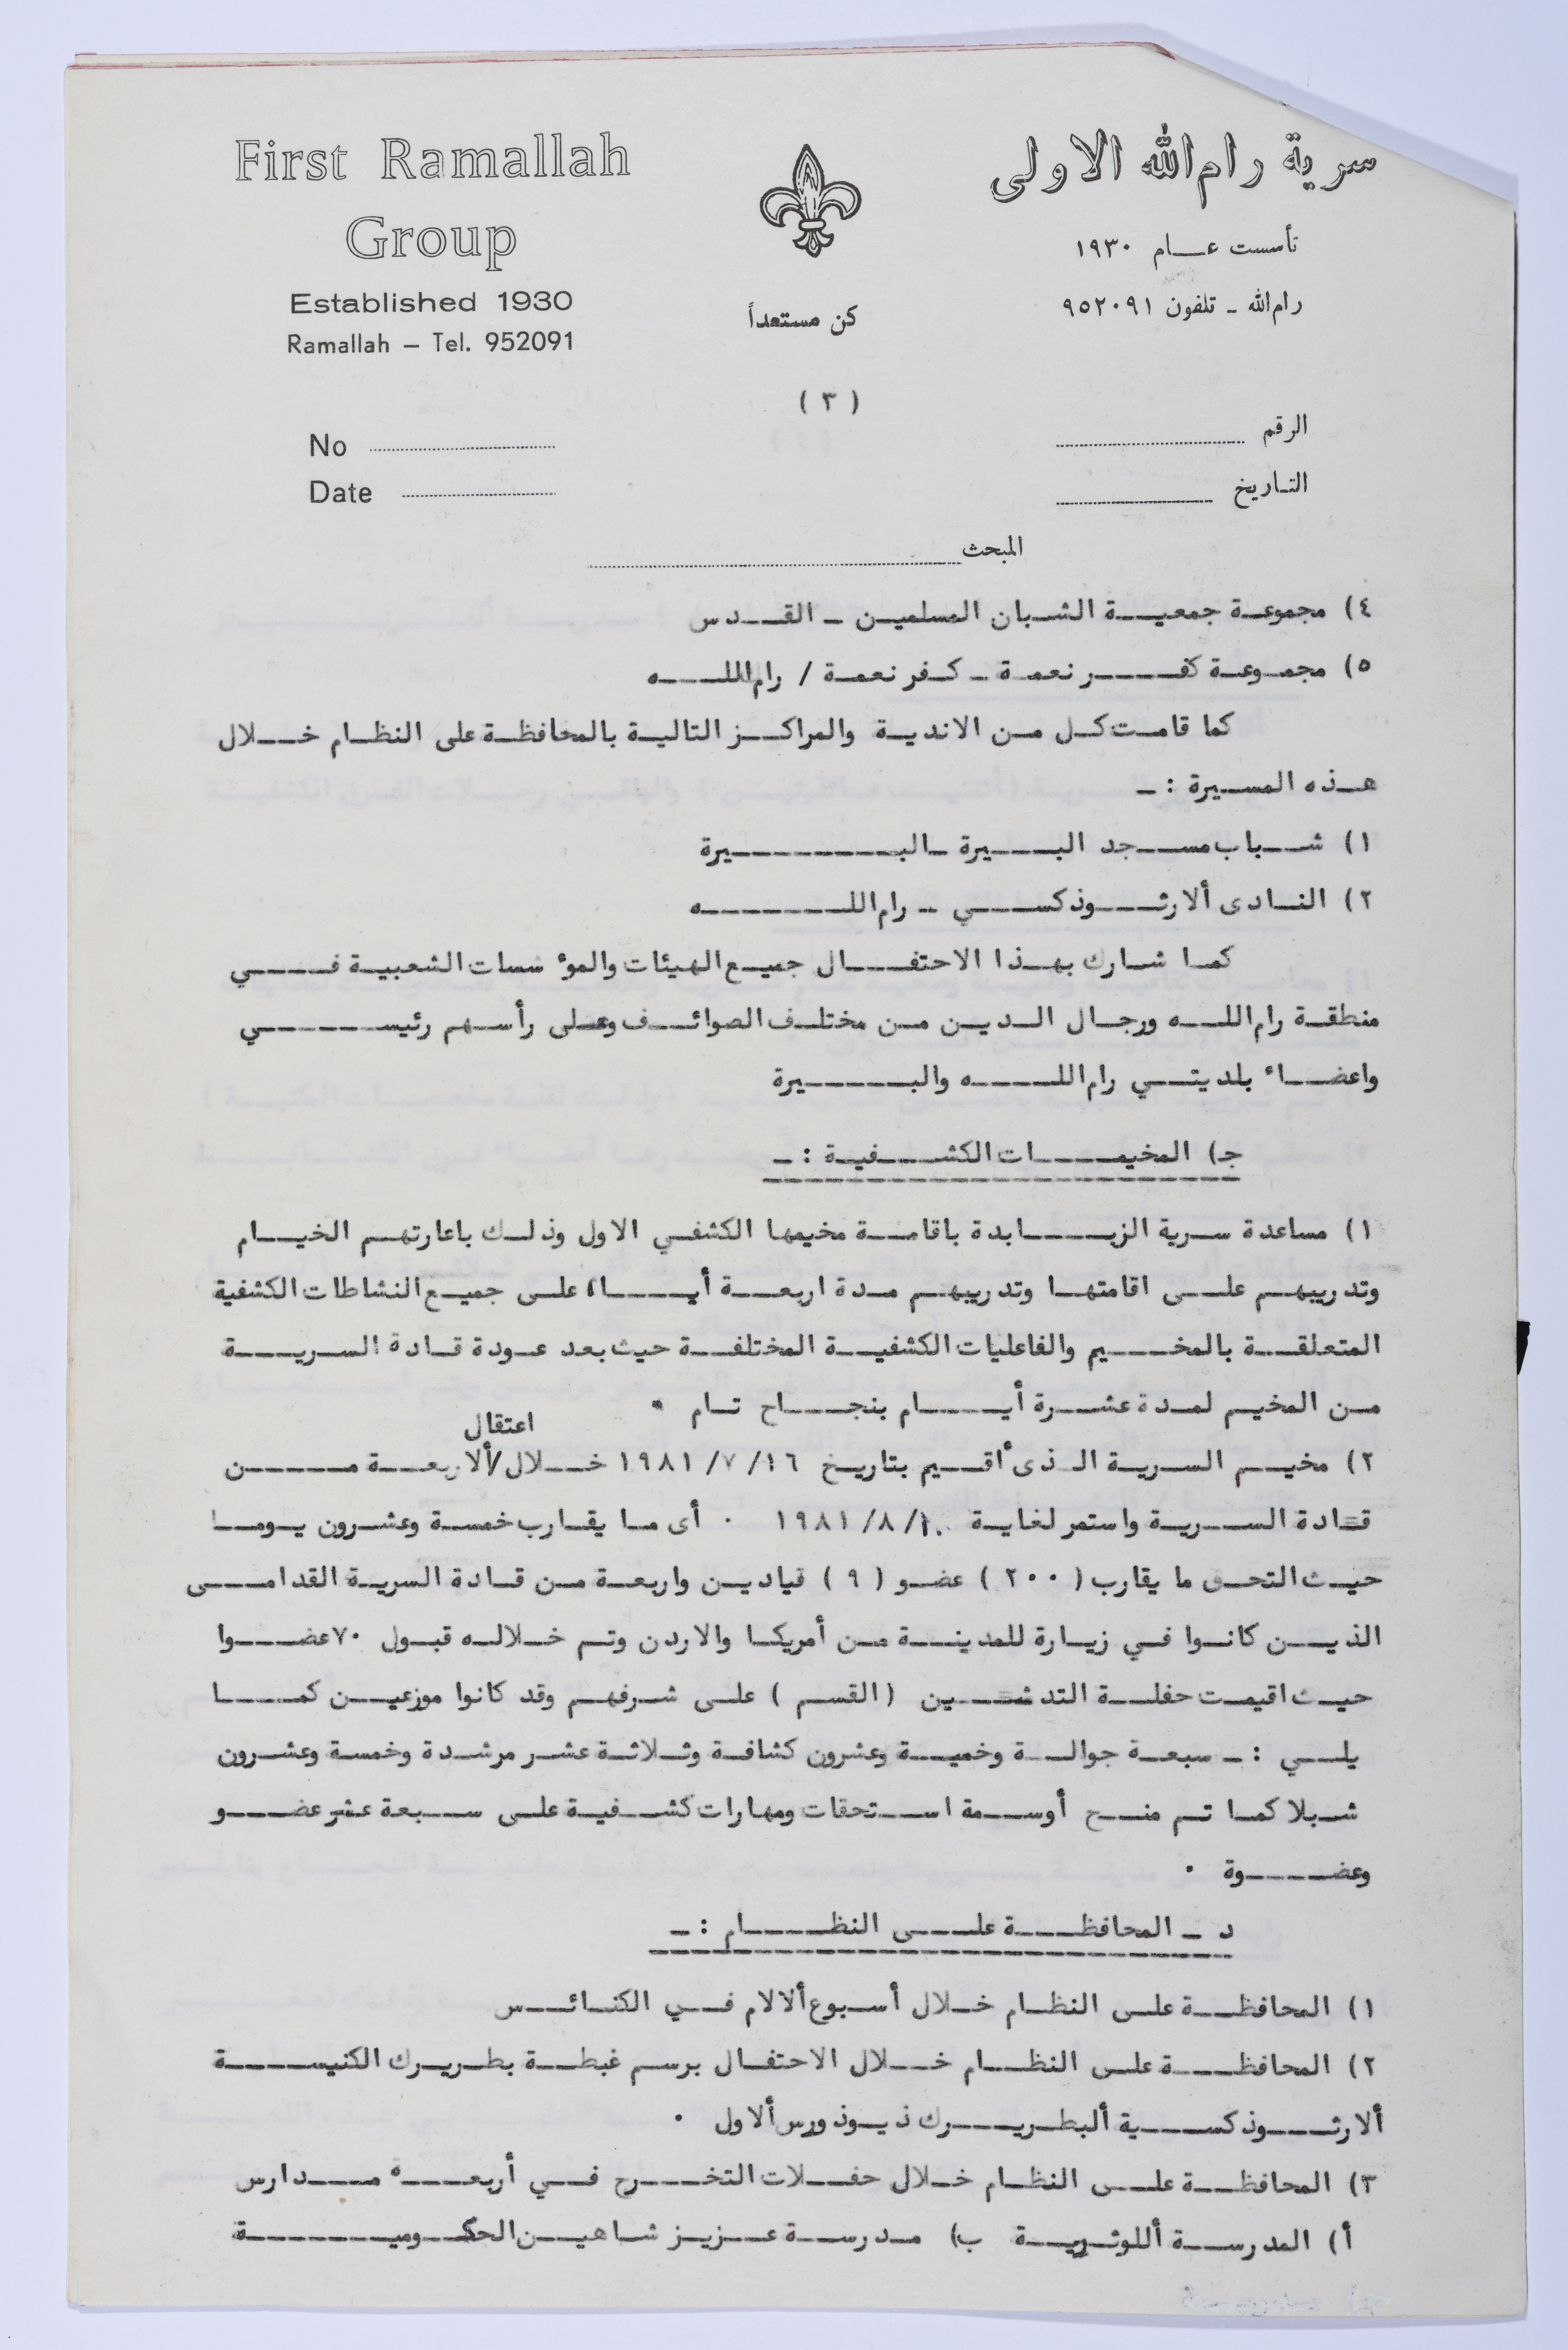 First Ramallah
Group
Established 1930
Ramallah – Tel. 952091
كن مستعداً
سرية رام الله الاولى
تأسست عام ١٩٣٠
رام الله - تلفون ٩٥٢٠٩١
( ٣ )
No
Date
الرقم
التاريخ
المبحث
٤) مجموعة جمعية الشبان المسلمين - القدس
٥) مجموعة كفر نعمة - كفر نعمة / رام الله
كما قامت كل من الاندية والمراكز التالية بالمحافظة على النظام خلال
هذه المسيرة :-
١) شباب مسجد البيرة - البيرة
٢) النادى ألارثوذكسي - رام الله
كما شارك بهذا الاحتفال جميع الهيئات والموٴسسات الشعبية في
منطقة رام الله ورجال الدين من مختلف الصوائف وعلى رأسهم رئيسي
واعضاء بلديتي رام الله والبيرة
جـ) المخيمات الكشفية :-
١) مساعدة سرية الزبابدة باقامة مخيمها الكشفي الاول وذلك باعارتهم الخيام
وتدريبهم على اقامتها وتدريبهم مدة اربعة أيام على جميع النشاطات الكشفية
المتعلقة بالمخيم والفاعليات الكشفية المختلفة حيث بعد عودة قادة السرية
من المخيم لمدة عشرة أيام بنجاح تام .
اعتقال
٢) مخيم السرية الذى أقيم بتاريخ ١٦/ ٧/ ١٩٨١ خلال/ألاربعة من
قادة السرية واستمر لغاية ١٠/ ٨/ ١٩٨١ . أى ما يقارب خمسة وعشرون يوما
حيث التحق ما يقارب ( ٢٠٠ ) عضو ( ٩ ) قياديين واربعة من قادة السرية القدامى
الذين كانوا في زيارة للمدينة من أمريكا والاردن وتم خلاله قبول ٧٠ عضوا
حيث اقيمت حفلة التدشين (القسم ) على شرفهم وقد كانوا موزعين كما
يلي :- سبعة جوالة وخمية وعشرون كشافة وثلاثة عشر مرشدة وخمسة وعشرون
شبلا كما تم منح أوسمة استحقات ومهارات كشفية على سبعة عشر عضو
وعضوة .
د - المحافظة على النظام :-
١) المحافظة على النظام خلال أسبوع ألالام في الكنائس
٢) المحافظة على النظام خلال الاحتفال برسم غبطة بطريرك الكنيسة
ألارثوذكسية ألبطريرك ذيوذورس ألاول .
٣) المحافظة على النظام خلال حفلات التخرح في أربعه مدارس
أ) المدرسة أللوثرية ب) مدرسة عزيز شاهين الحكومية